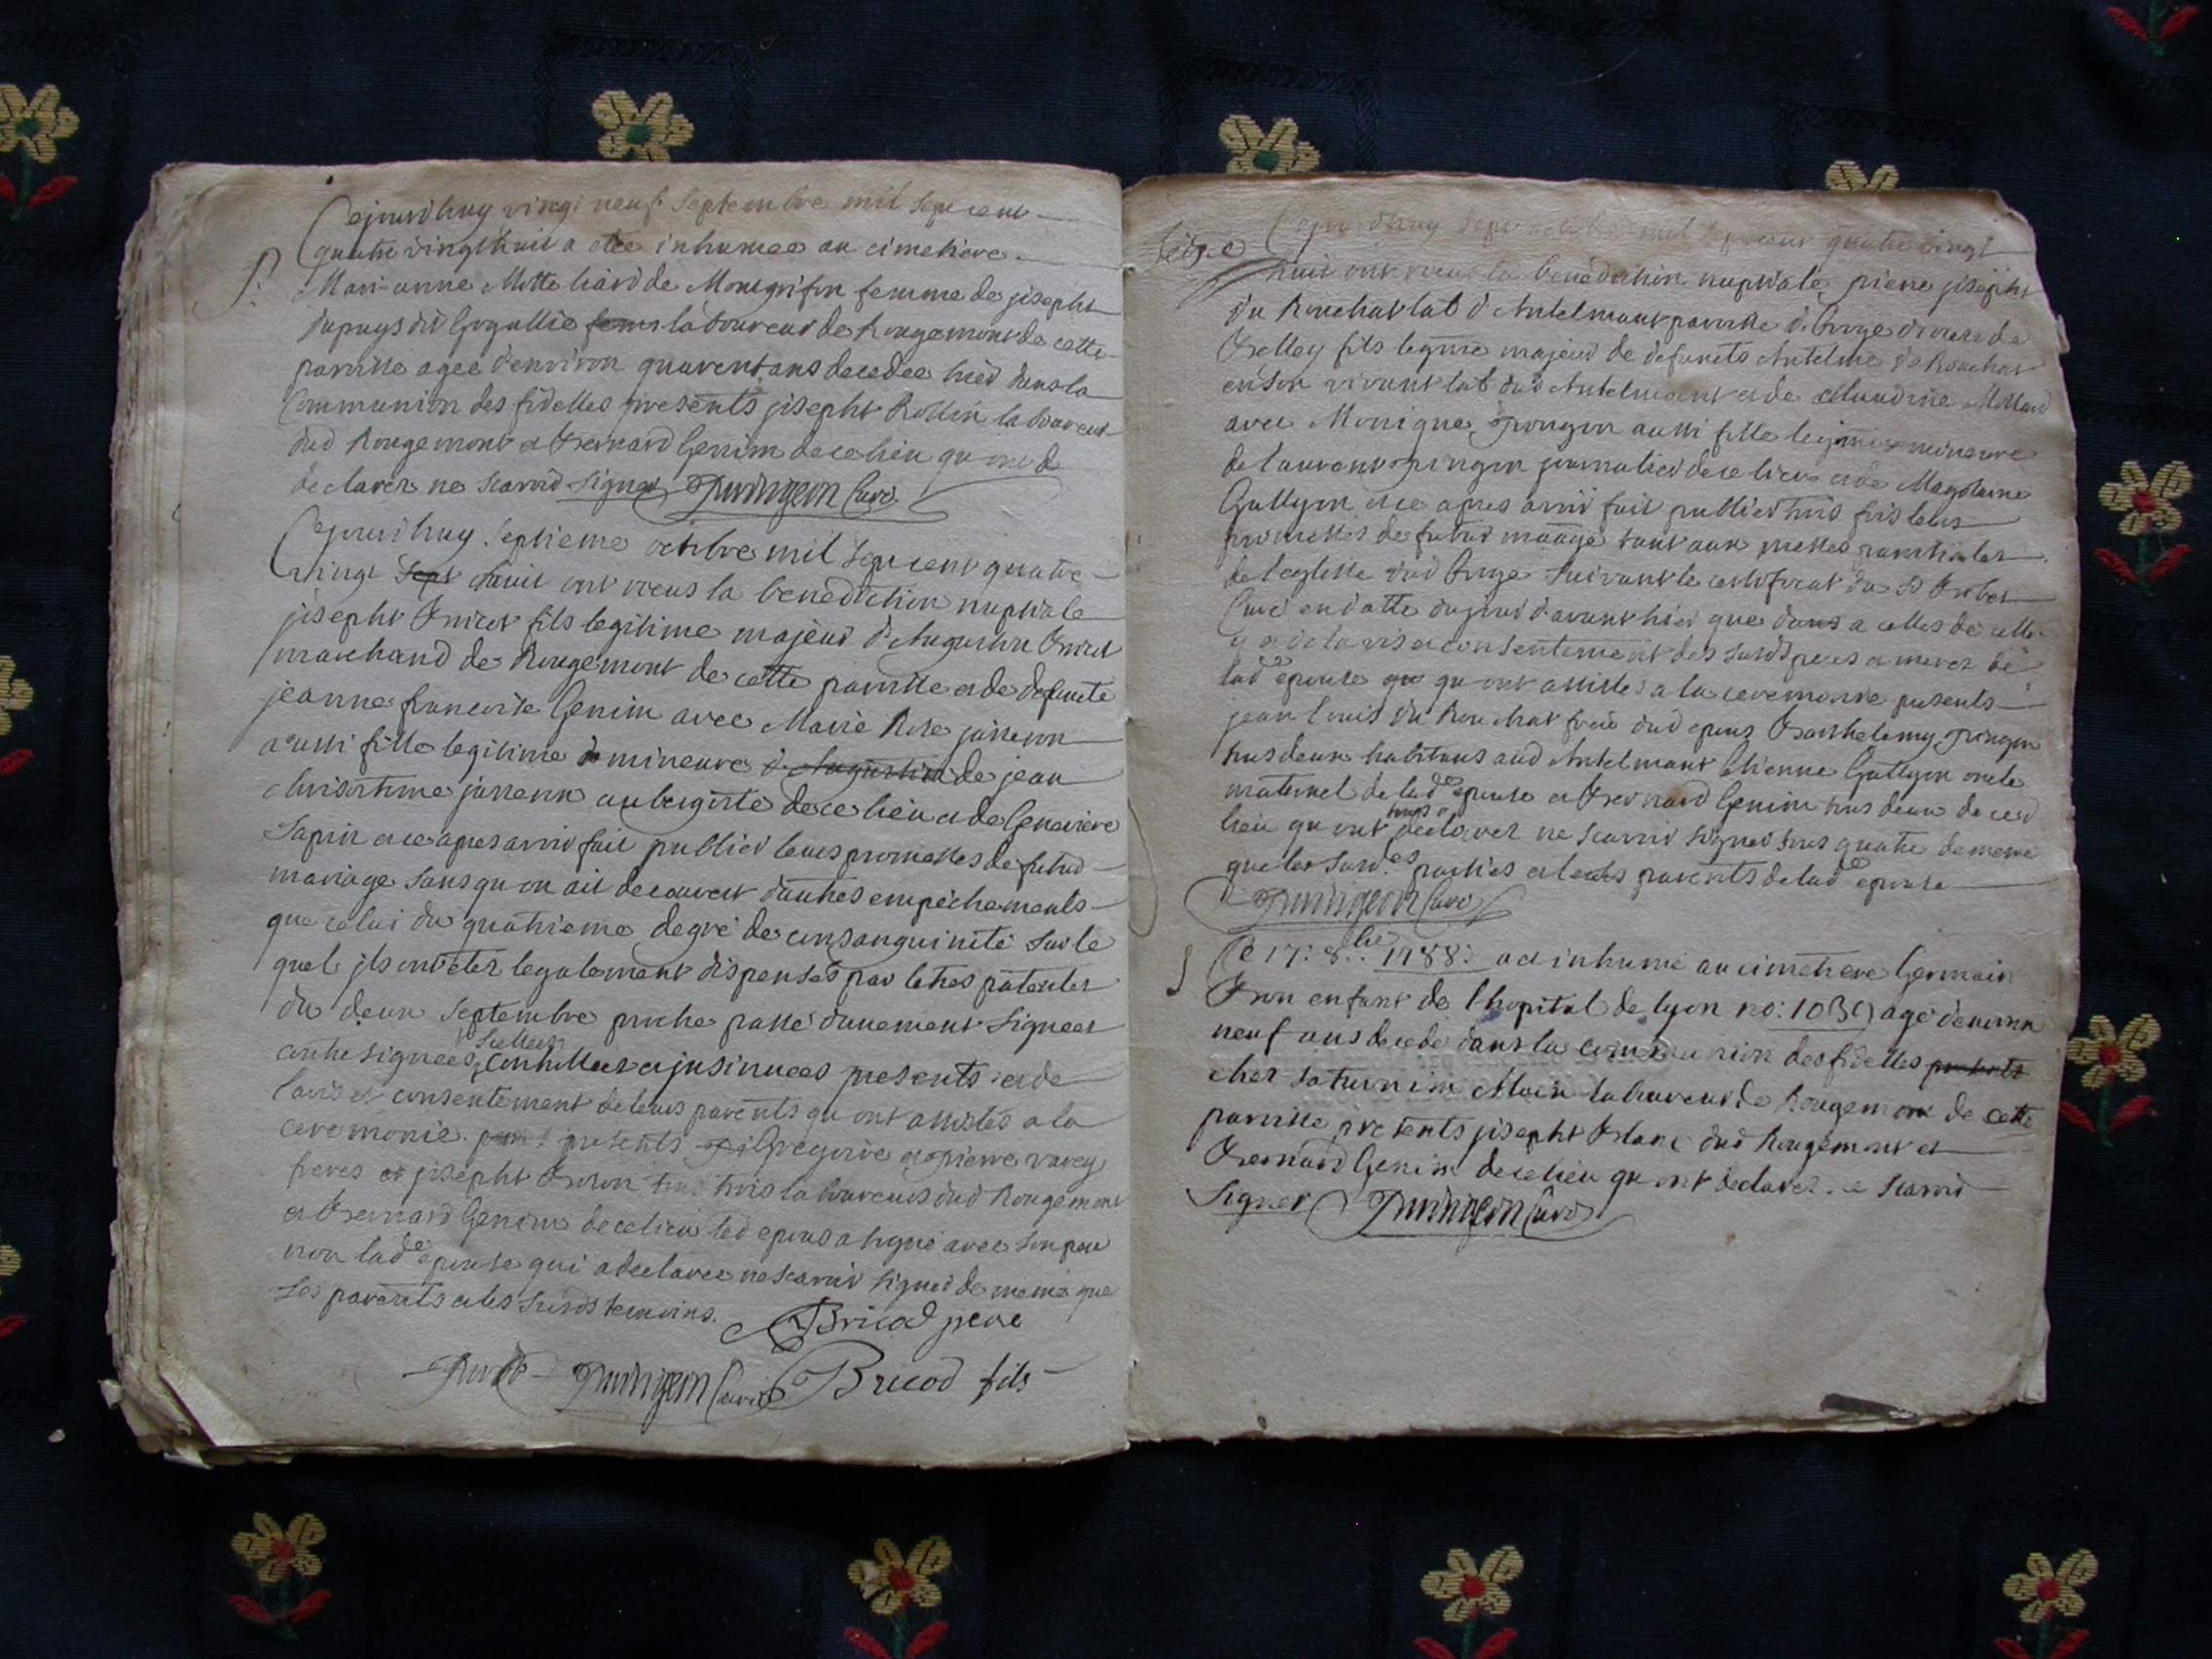 Cejourdhuy vingt neuf septembre mil sept cent
quatre vingt huit a etée inhumee au cimetiere
Mari-anne Motte liard de Montgrifon femme de joseph
dupuys dit Gogallie laboureur de Rougemont de cette
paroisse agee denviron quarent ans decedee hier dans la
Communion des fidelles presents joseph Rollin laboureur
dud Rougemont et Bernard Genin de ce lieu qu ont de
declarer ne scavoir signer Curé
Cejourdhuy septieme octobre mil sept cent quatre
vingt sept huit ont recus la benediction nuptiale
joseph Bricot fils legitime majeur d'Augustin Bricot
marchand de Rougemont de cette paroisse et de defuncte
jeanne francoise Genin avec Marie Rose
aussi fille legitime & mineure d'Augustin de jean
aubergiste de ce lieu et de Genevieve
Sapin et ce apres avoir fait publier leurs promesses de futur
mariage sans qu on ait decouvert dautres empechements
que celui du quatrieme degré de consanguinité sur le
quel ils ont etez legalement dispensés par lettres patentes
du deux septembre proche passé duement signees
contresignees, scellees controllees et jnsinuees presents et de
lavis et consentement de leurs parents qu ont assistés a la
ceremonie. presents Gregoire et pierre varey
freres et joseph tous trois laboureurs dud Rougemont
et Bernard Genin de ce lieu led epoux a signé avec son pere
non lade epouse qui a declaree ne scavoir signer de meme que
ses parents et les susds temoins. Bricod pere
Curé Bricod fils
Cejourdhuy sept octobre mil sept cent quatre vingt
huit ont recus la benediction nuptiale pierre joseph
du Rouchat lab d'Antelmant paroisse d'Onge diocese de
Belley fils legitime majeur de defuncts Antelme du Rouchat
en son vivant lab dud Antelmant et de Claudine
avec Monique Pingon aussi fille legitime mineure
de Laurent Pingon journalier de ce lieu et de Magdelaine
Guttyon et ce apres avoir fait publier trois fois leurs
promesses de futur mariage tant aux messes paroissiales
de leglisse dud Onge suivant le certificat du Sr
Curé en datte du jour d'avant hier que dans a celles de celle
cy et de lavis et consentement des susds peres et meres de
lade epouse qu ont assistes a la ceremonie presents
jean louis du Rouchat frere dud epoux Barthelemy Pingon
tous deux habitans aud Antelmant Etienne Guttyon oncle
maternel de lade epouse et Bernard Genin tous deux de ced
lieu qu ont tous declarer ne scavoir signer tous quatre de meme
que les susdes parties et les parents de lade epouse
Curé
Ce 17: 8bre 1788: a eté inhumé au cimetiere Germain
enfant de l'hopital de lyon no: 1039 agé denviron
neuf ans decedé dans la communion des fidelles presents
chez saturnin laboureur de Rougemont de cette
paroisse presents joseph Blanc dud Rougemont et
Bernard Genin de ce lieu qu ont declarer ne scavoir
signer Curé